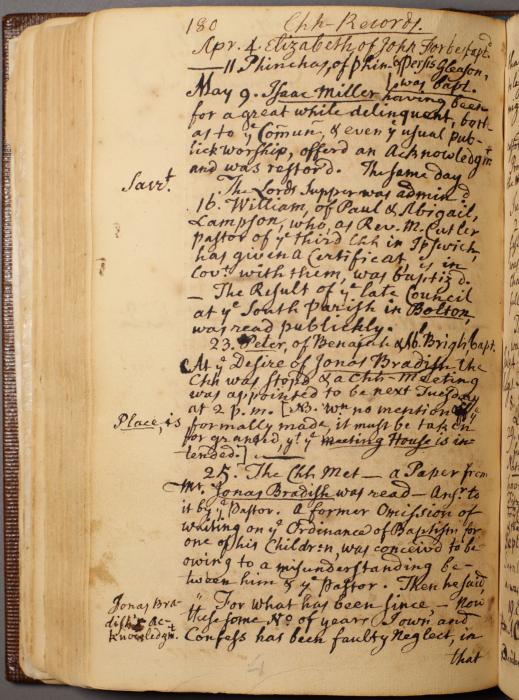 180 Chh-Records.
Apr. 4. Elizabeth, of John Forbes bapt.d
— 11 Phinehas, of Phin. & Persis Gleason,
was bapt.
May 9. Isaac Miller having been
for a great while delinquent, both
as to ye Com̄un, & even ye usual pub-
lick worship, offerd an Acknowledgmt
and was restord. The same day
Sacrt. The Lords Supper was admind.
16. William, of Paul & Abigail,
Lampson, who, as Rev. Mr. Cutler
pastor of ye third Chh in Ipswich,
has given a Certificat, is in
Covt with them, was baptizd.
— The Result of ye late Council
at ye South Parish in Bolton,
was read publickly.
23. Peter, of Benajah & Ab. Brigh bapt.
At ye Desire of Jonas Bradish the
Chh was stopd & a Chh-Meeting
was appointed to be next Tuesday
at 2 p.m. [N.B. Wn no mention of ye
Place, is formally made, it must be taken
for granted, yt ye Meeting House is in-
tended.]
25. The Chh Met — a Paper from
Mr. Jonas Bradish was read — Ansr to
it by ye Pastor. A former Omission of
waiting on ye Ordinance of Baptism for
one of his Childrn, was conceivd to be
owing to a misunderstanding be-
tween him & ye Pastor. Then he said,
Jonas Bra-
dish's Ac-
knowledgmt.
" For what has been since, — Now
these some No of years I own and
Confess has been faulty Neglect, in
that